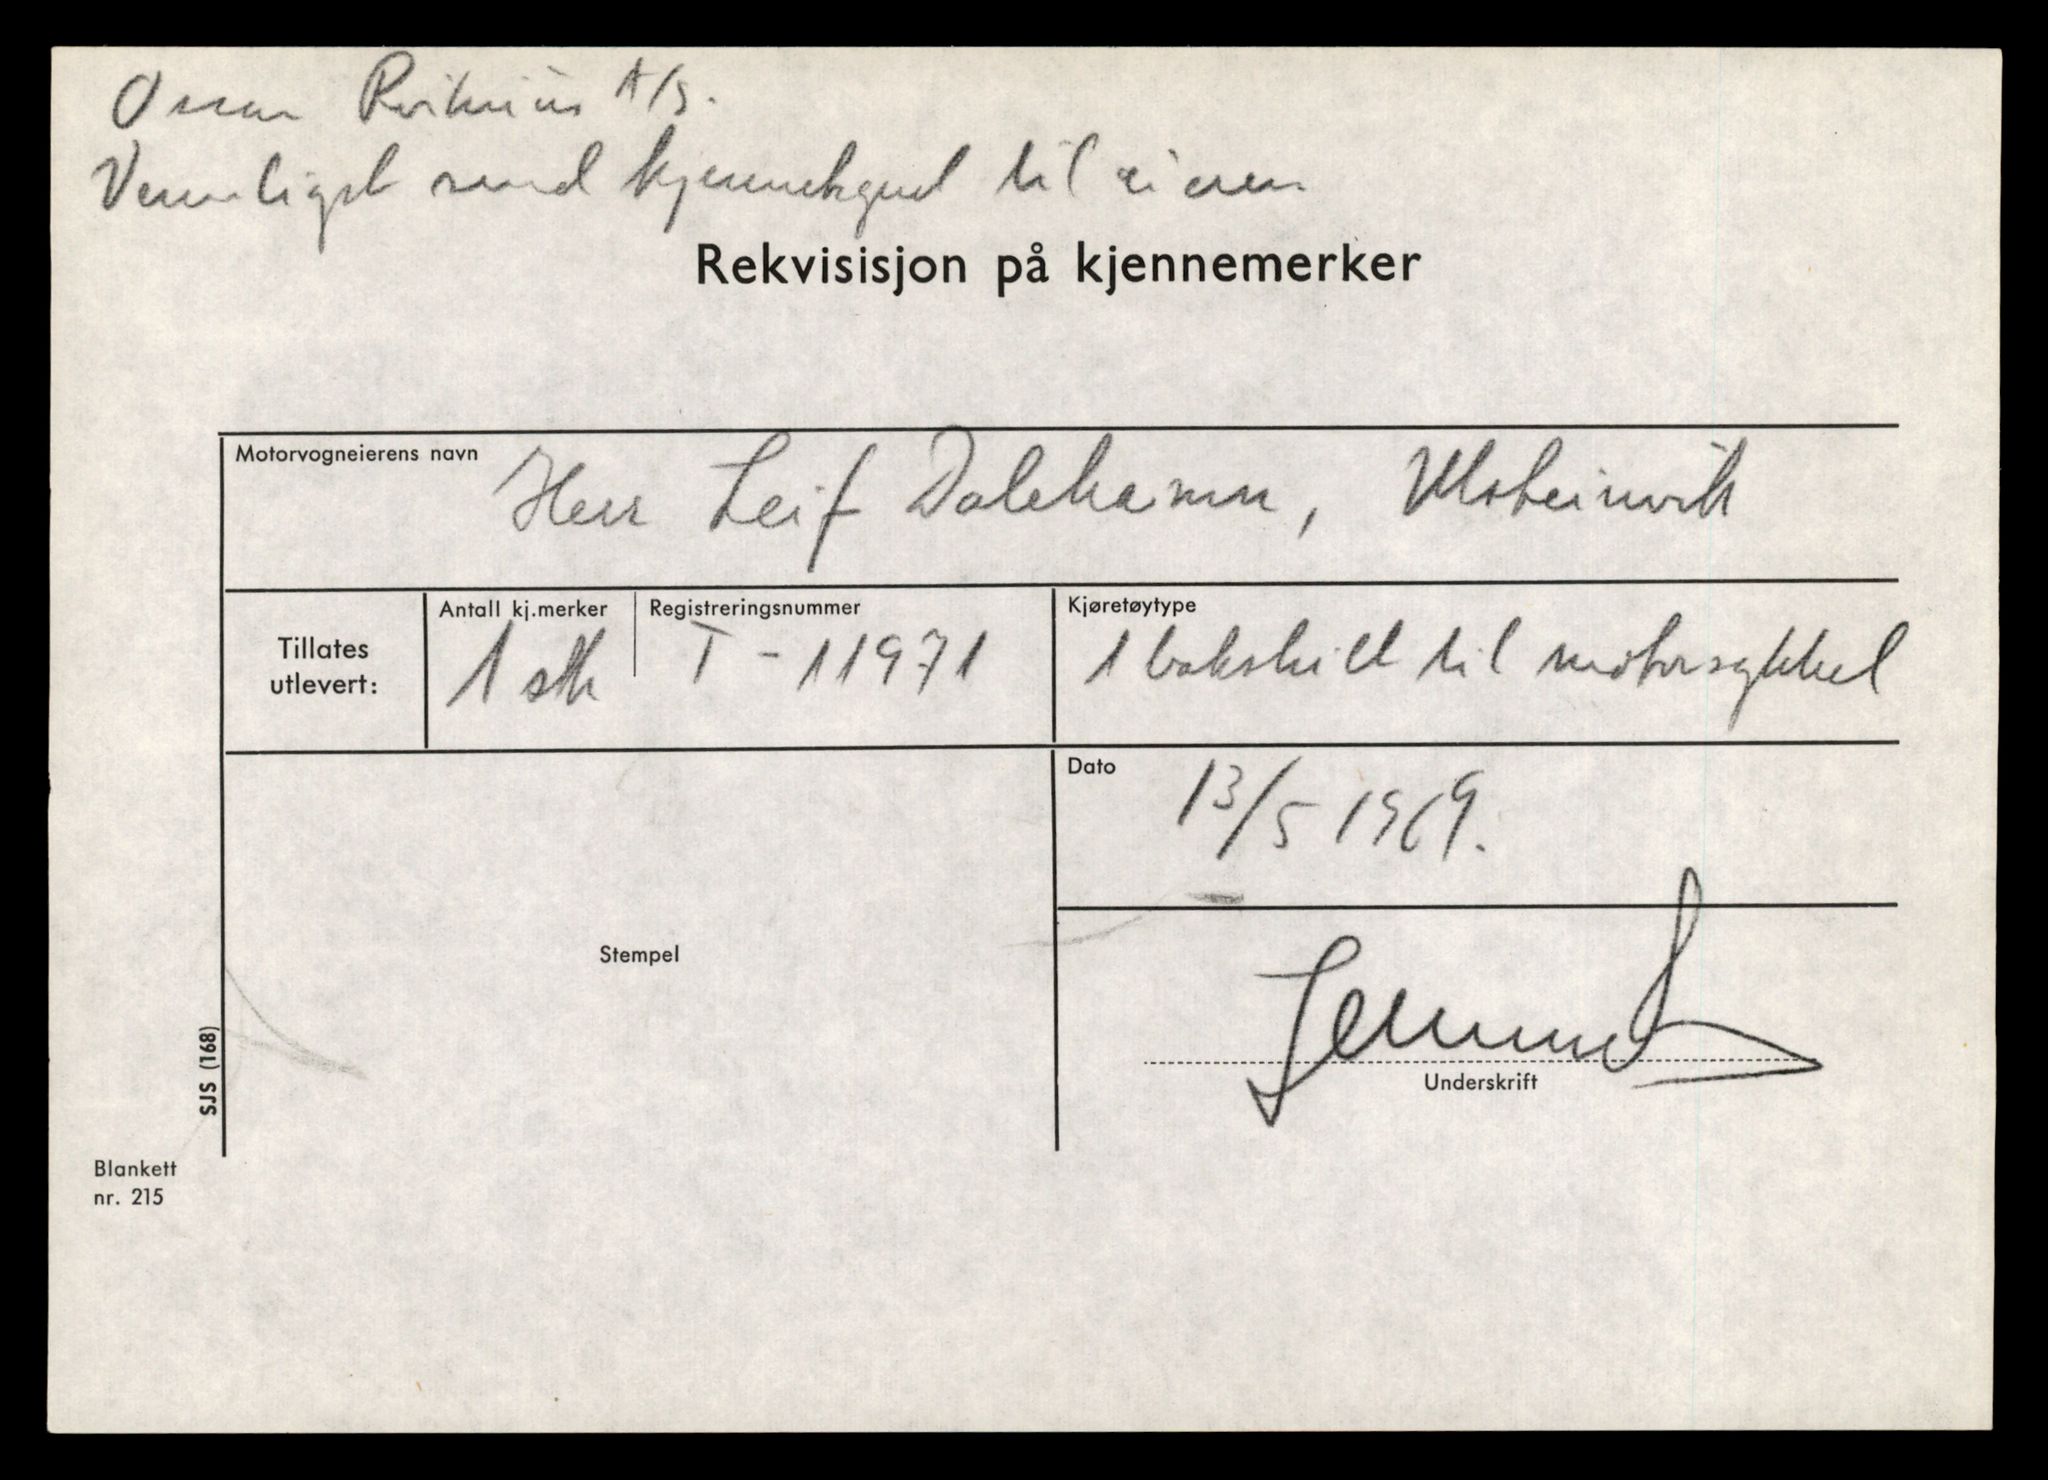 Oscar A/S.
Vennligst send til eieren
Rekvisisjon på kjennemerker
Motorvogneierens navn
Herr Leif Dalehamn, Ulsteinvik
Tillates
utlevert:
Antall kj.merker
1 stk
Registreringsnummer
T - 11971
Kjøretøytype
1 bakskilt til motorsykkel
Dato
13/5 1969.
Stempel
Underskrift
SJS (168)
Blankett
nr. 215